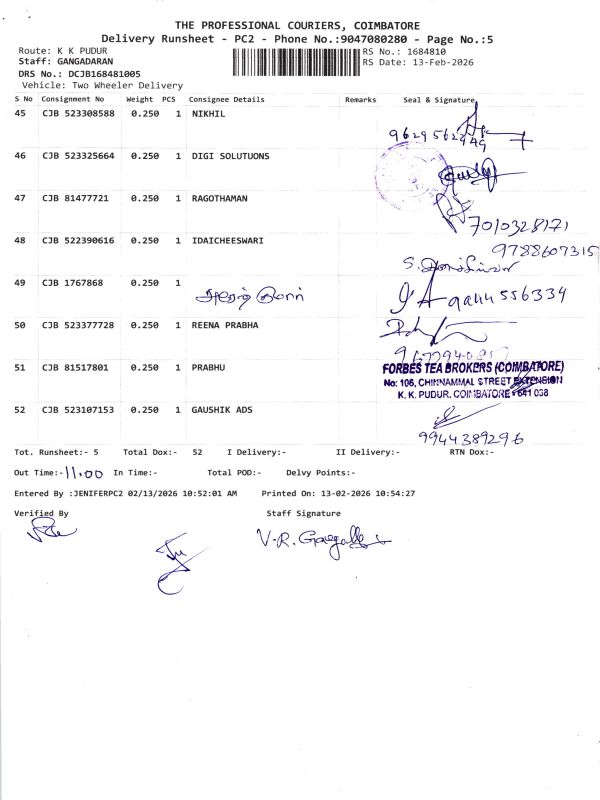 THE PROFESSIONAL COURIERS, COIMBATORE
Delivery Runsheet - PC2 - Phone No.:9047080280 - Page No.:5
Route: K K PUDUR RS No.: 1684810
Staff: GANGADARAN RS Date: 13-Feb-2026
DRS No.: DCJB168481005
Vehicle: Two Wheeler Delivery
S No Consignment No Weight PCS Consignee Details Remarks Seal & Signature
45 CJB 523308588 0.250 1 NIKHIL
9629562449
46 CJB 523325664 0.250 1 DIGI SOLUTUONS
47 CJB 81477721 0.250 1 RAGOTHAMAN
7010328171
48 CJB 522390616 0.250 1 IDAICHEESWARI 9788607315
49 CJB 1767868 0.250 1
9944556334
50 CJB 523377728 0.250 1 REENA PRABHA
51 CJB 81517801 0.250 1 PRABHU FORBES TEA BROKERS (COIMBATORE)
No: 106, CHINNAMMAL STREET EXTENSION
K. K. PUDUR, COIMBATORE - 641 038
52 CJB 523107153 0.250 1 GAUSHIK ADS
9944389296
Tot. Runsheet:- 5 Total Dox:- 52 I Delivery:- II Delivery:- RTN Dox:-
Out Time:- 11.00 In Time:- Total POD:- Delvy Points:-
Entered By :JENIFERPC2 02/13/2026 10:52:01 AM Printed On: 13-02-2026 10:54:27
Verified By Staff Signature